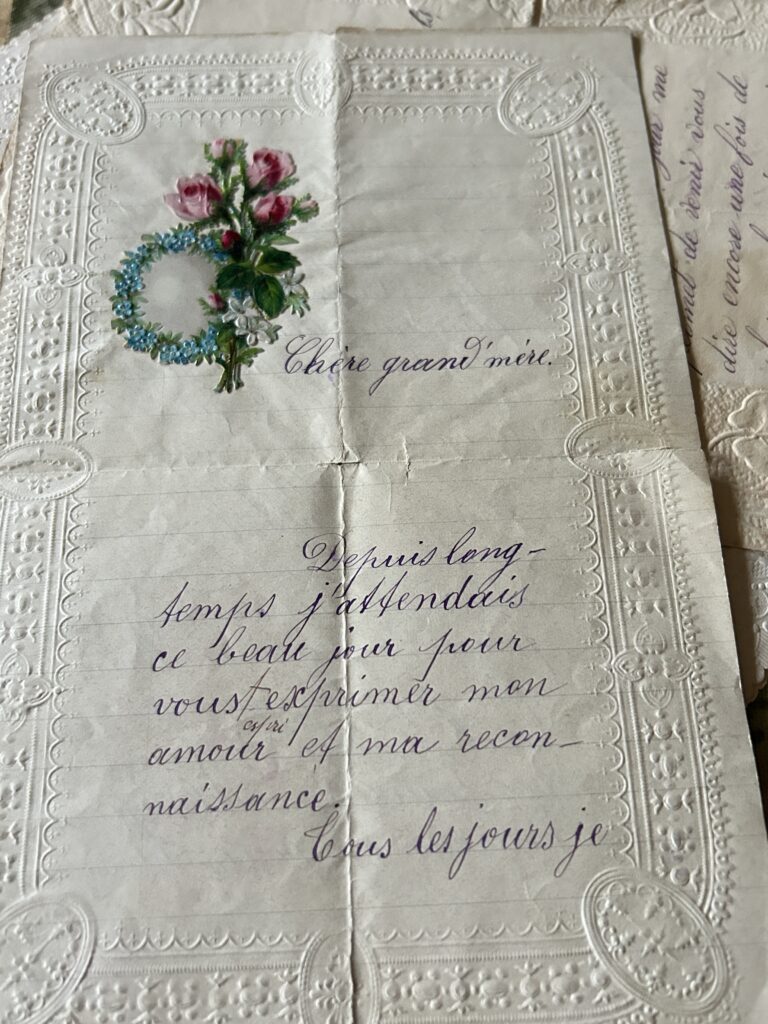 Chère grand'mère.
Depuis long-
temps j'attendais
ce beau jour pour
vous exprimer mon
amour et ma recon-
naissance.
Tous les jours je
me
de venir vous
dire encore une fois de